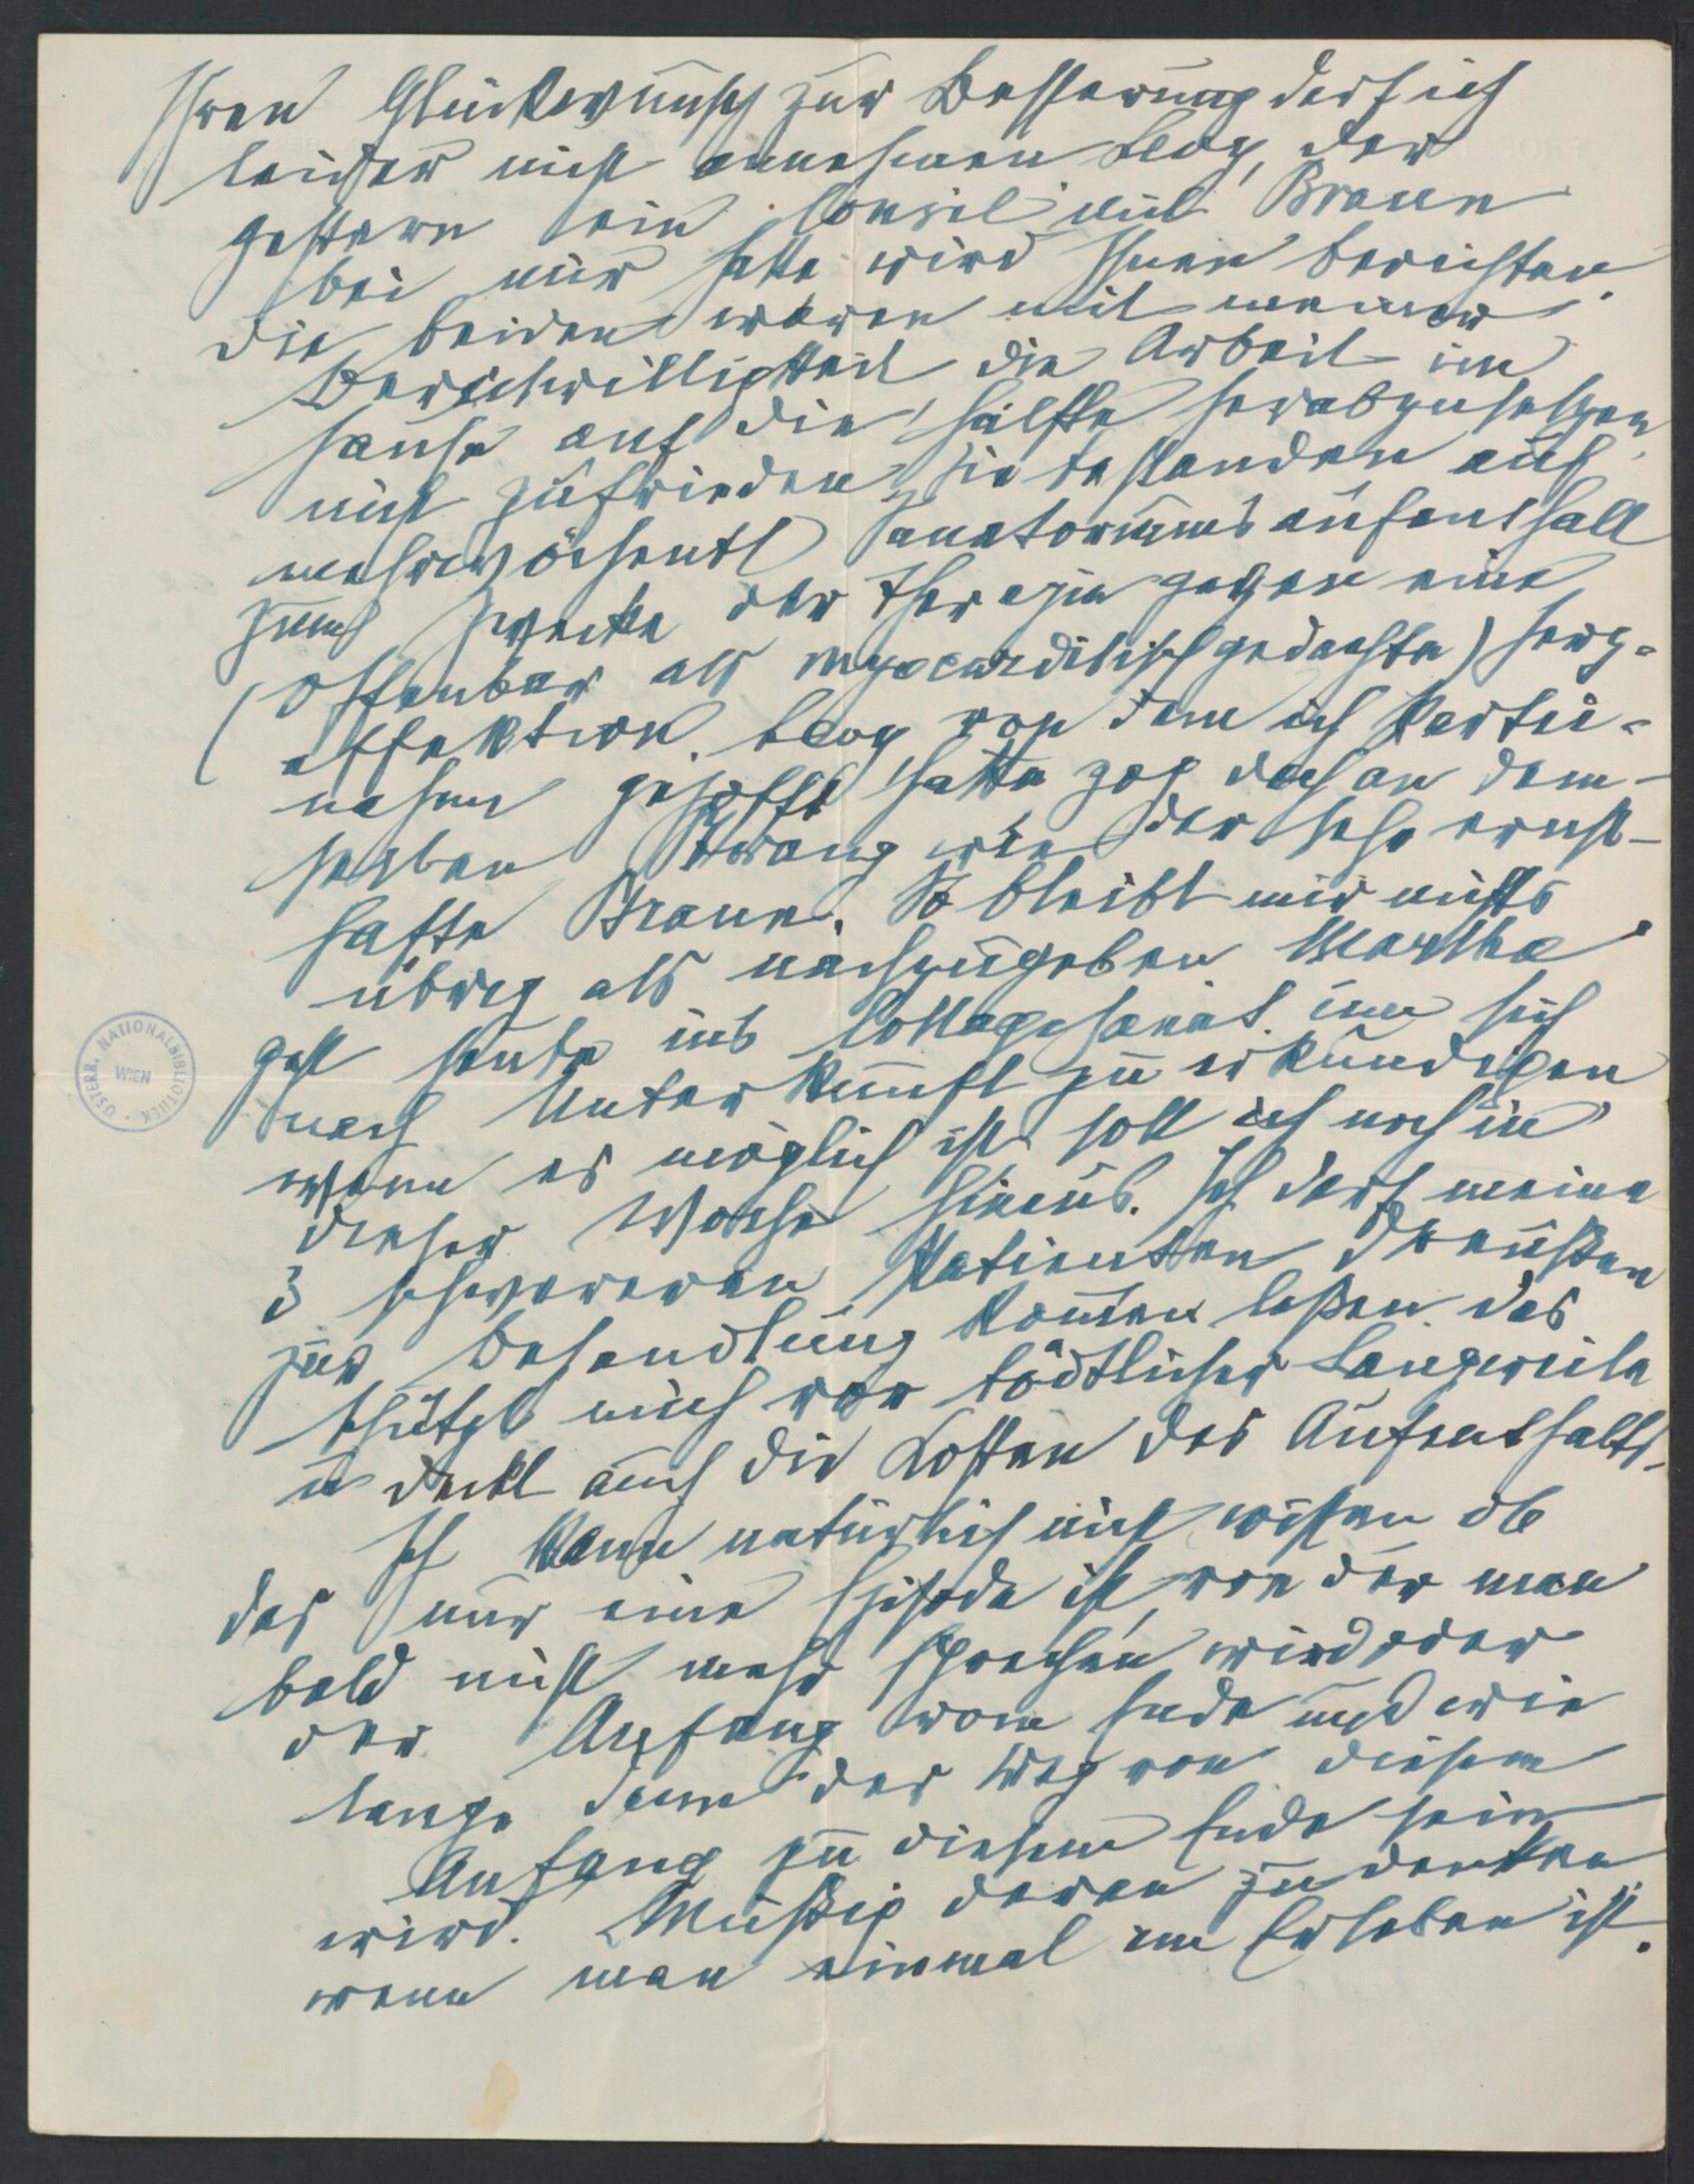 Ihren Glückwunsch zur Besserung darf ich
leider nicht annehmen. Levy, der
gestern ein Consil mit Braun
bei mir hatte wird Ihnen berichten.
Die beiden waren mit meiner
Bereitwilligkeit die Arbeit im
Hause auf die Hälfte herabzusetzen
nicht zufrieden, sie bestanden auf
mehrwöchentl Sanatoriumsaufenthalt
zum Zwecke der Therapie gegen eine
(offenbar als myocarditisch gedachte) Herz-
affektion. Levy von dem ich Partei-
nahme gehofft hatte zog doch an dem-
selben Strang wie der sehr ernst-
hafte Braun. So bleibt mir nichts
übrig als nachzugeben. Martha
geht heute ins Cottagesanat. um sich
nach Unterkunft zu erkundigen
wenn es möglich ist soll ich noch in
dieser Woche hinaus. Ich darf meine
3 schwereren Patienten draußen
zur Behandlung kommen laßen. das
schützt mich vor tödtlicher Langweile
u deckt auch die Kosten des Aufenthalts.
Ich kann natürlich nicht wißen ob
das nur eine Episode ist, von der man
bald nicht mehr sprechen wird oder
der Anfang vom Ende und wie
lange dann der Weg von diesem
Anfang zu diesem Ende sein
wird. Müßig daran zu denken
wenn man einmal im Erleben ist.
ÖSTERR. NATIONALBIBLIOTHEK · WIEN